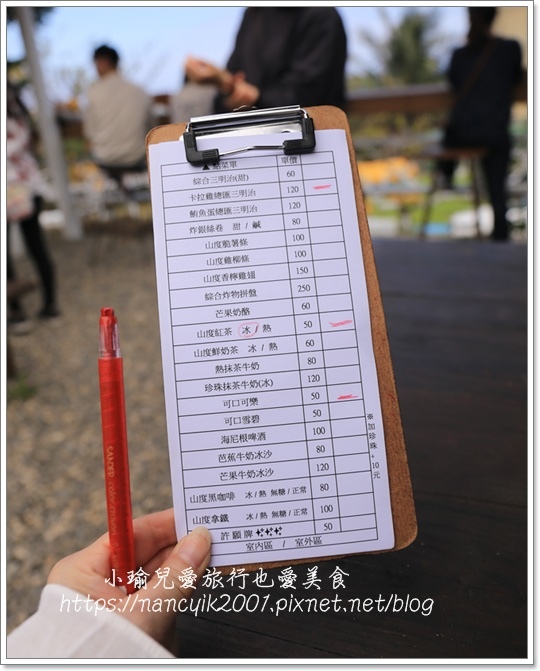 點菜單 單價
綜合三明治(甜) 60
卡拉雞總匯三明治 120
鮪魚蛋總匯三明治 120
炸銀絲卷 甜 / 鹹 80
山度脆薯條 100
山度雞柳條 100
山度香檸雞翅 150
綜合炸物拼盤 250
芒果奶酪 60
山度紅茶 冰 / 熱 50
山度鮮奶茶 冰 / 熱 60
熱抹茶牛奶 80
珍珠抹茶牛奶(冰) 120
可口可樂 50
可口雪碧 50
海尼根啤酒 100
芭蕉牛奶冰沙 80
芒果牛奶冰沙 120
山度黑咖啡 冰 / 熱 無糖 / 正常 80
山度拿鐵 冰 / 熱 無糖 / 正常 100
許願牌 50
室內區 / 室外區
※加珍珠+10元
小瑜兒愛旅行也愛美食
https://nancyik2001.pixnet.net/blog